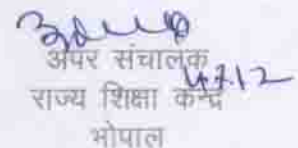 अपर संचालक
4.7.12
राज्य शिक्षा केन्द्र
भोपाल